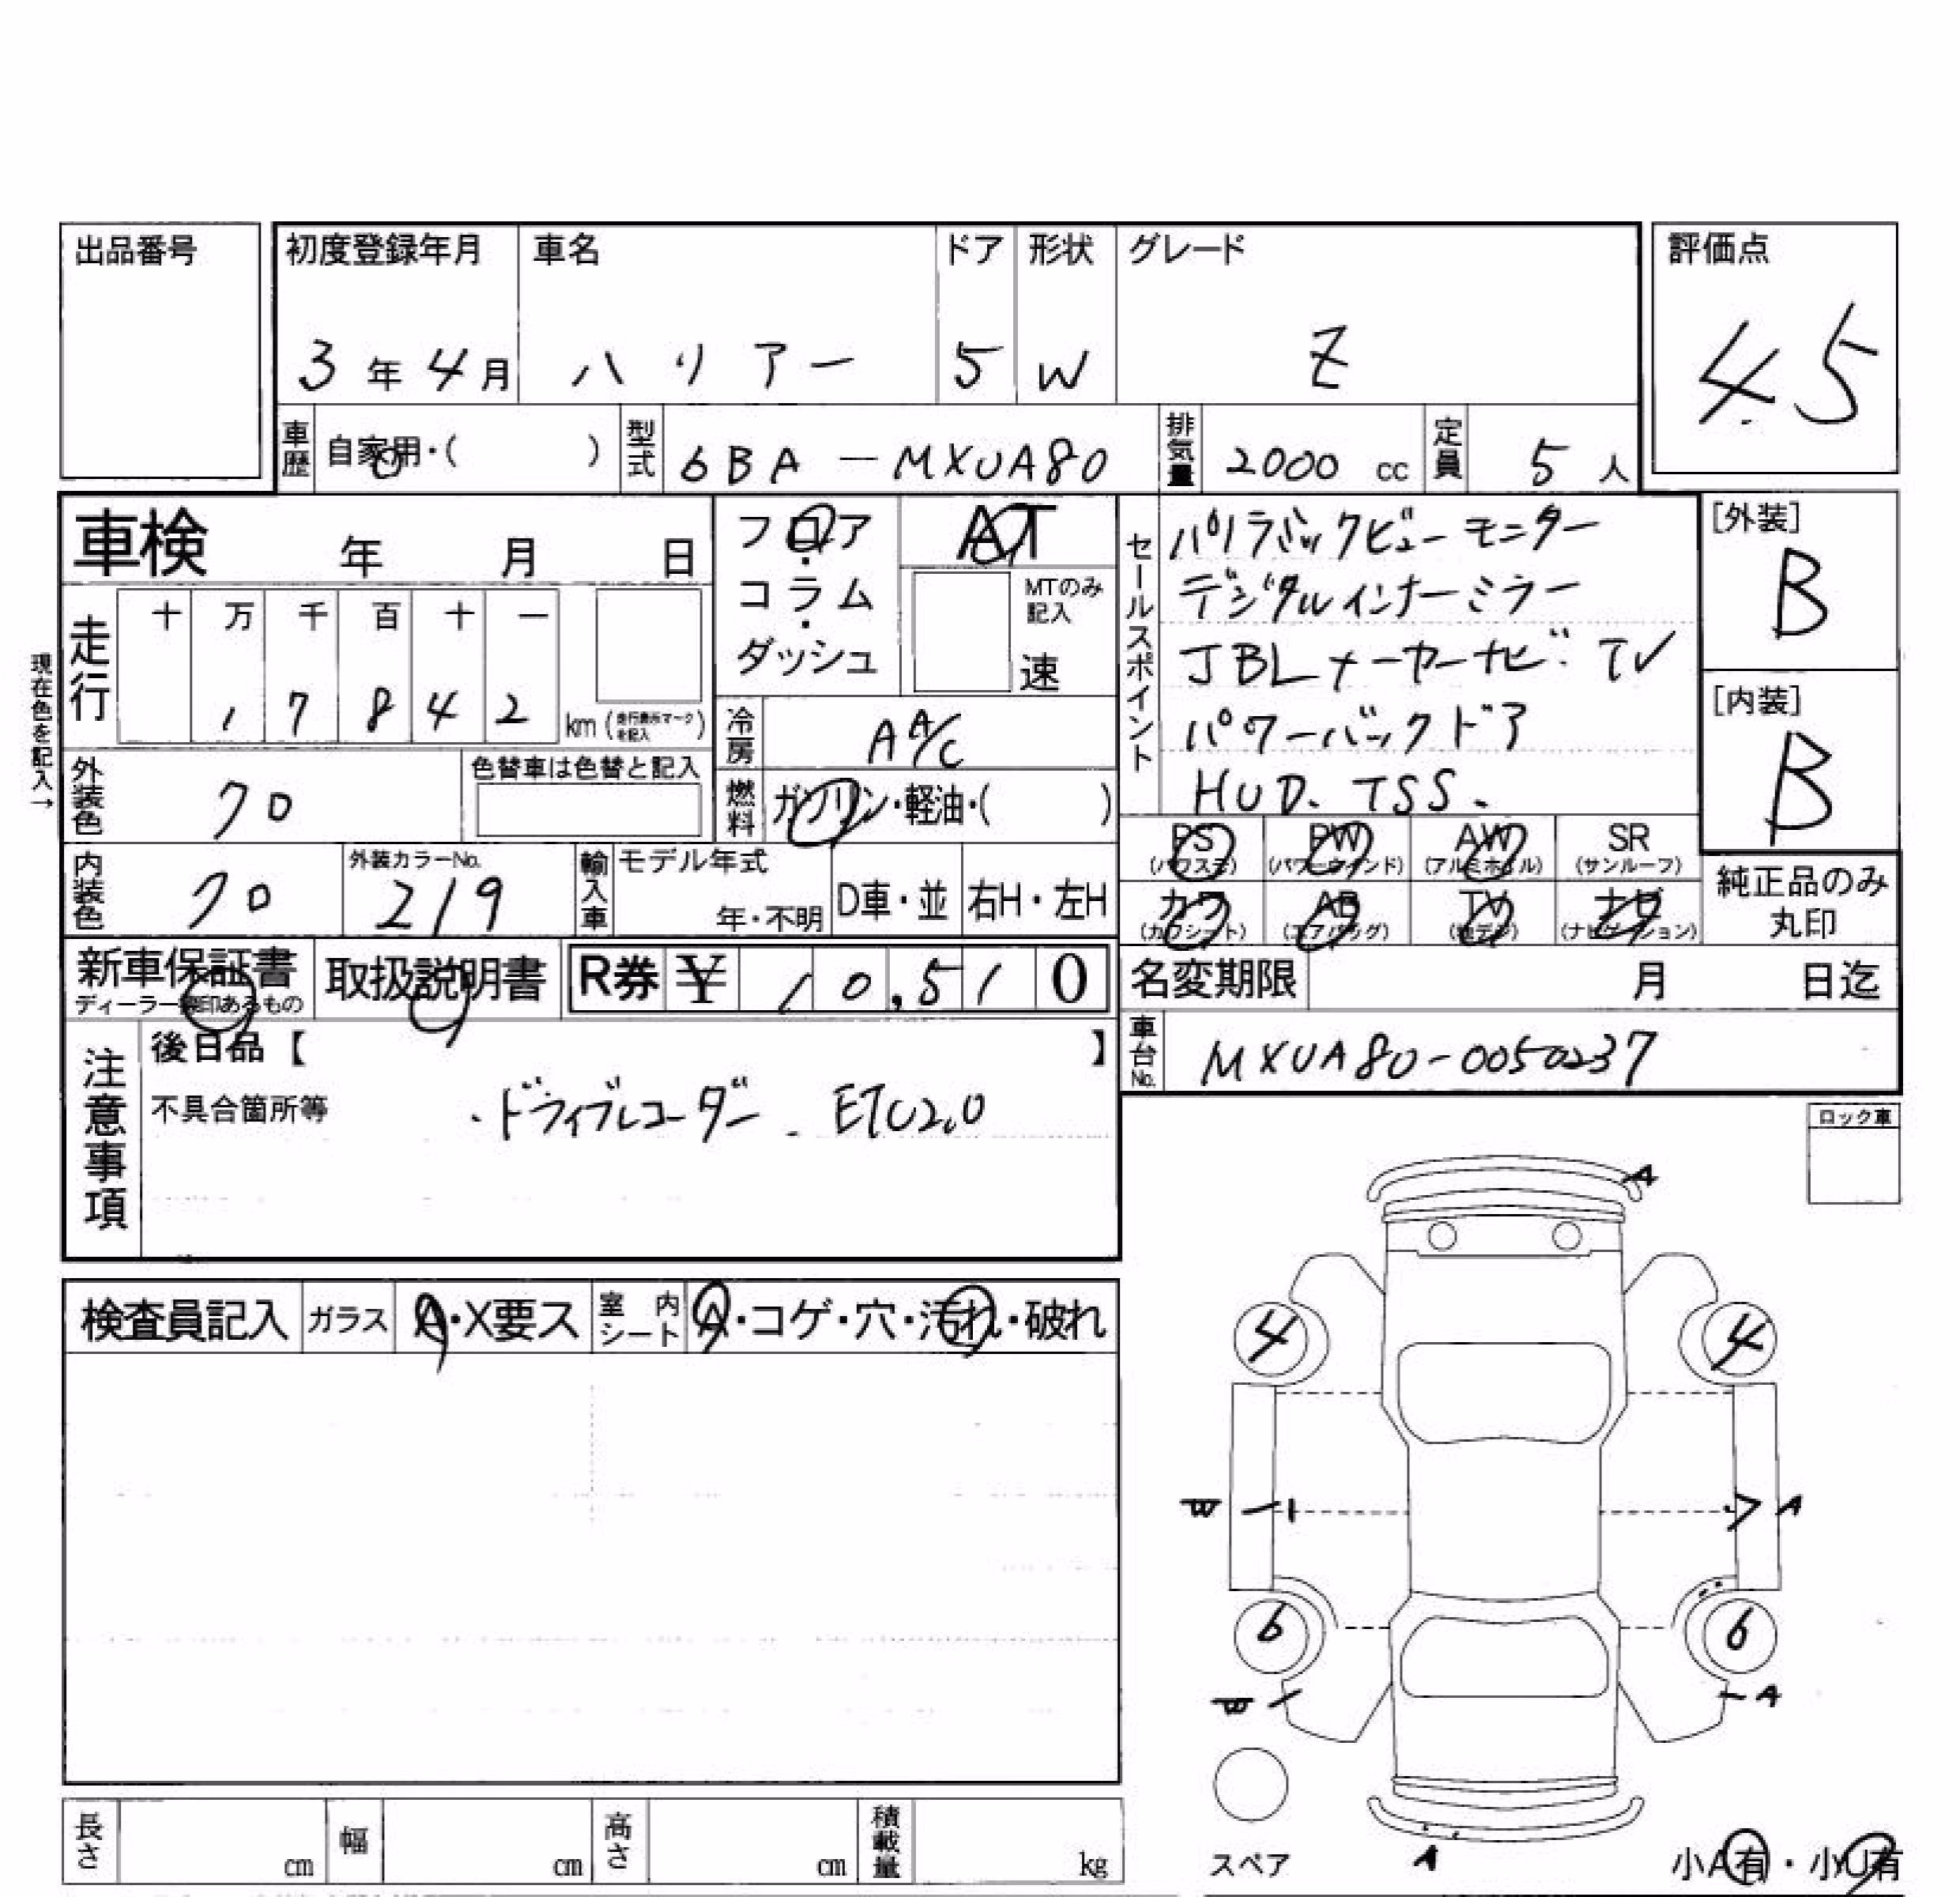 出品番号
初度登録年月 車名 ドア 形状 グレード 評価点
3年4月 ハリアー 5 W Z 4.5
車歴 自家用・( ) 型式 6BA-MXUA80 排気量 2000 cc 定員 5人
車検 年 月 日
フロア・コラム・ダッシュ
AT
MTのみ記入
速
走行 十 万 千 百 十 一
1 7 8 4 2 km (走行表示マークを記入)
現在色を記入→
冷房 AA/C
外装色 クロ
色替車は色替と記入
燃料 ガソリン・軽油・( )
内装色 クロ
外装カラーNo.
219
輸入車 モデル年式
年・不明 D車・並 右H・左H
セールスポイント
パノラミックビューモニター
デジタルインナーミラー
JBLメーカーナビ・TV
パワーバックドア
HUD. TSS.
[外装]
B
[内装]
B
PS (パワステ) PW (パワーウインド) AW (アルミホイル) SR (サンルーフ)
カワ (カワシート) AB (エアバッグ) TV (地デジ) ナビ (ナビゲーション)
純正品のみ
丸印
新車保証書
ディーラー捺印あるもの
取扱説明書
R券 ¥ 10,510
名変期限 月 日迄
車台No. MXUA80-0050237
注意事項
後日品【 】
不具合箇所等 ・ドライブレコーダー . ETC2.0
ロック車
検査員記入 ガラス A・X要ス 室内シート A・コゲ・穴・汚れ・破れ
A
4 4
W A
6 6
W A
スペア
A
小A有・小U有
長さ cm 幅 cm 高さ cm 積載量 kg